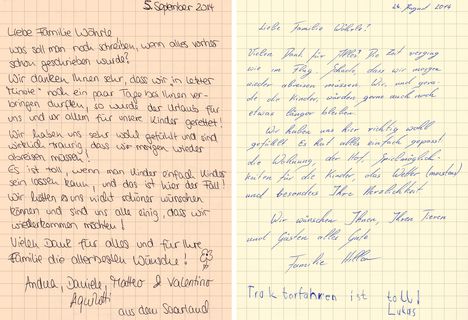 5. September 2014
Liebe Familie Wöhrle
was soll man noch schreiben, wenn alles vorher
schon geschrieben wurde?
Wir danken Ihnen sehr, dass wir in letzter
"Minute" noch ein paar Tage bei Ihnen ver-
bringen durften, so wurde der Urlaub für
uns und vor allem für unsere Kinder gerettet!
Wir haben uns sehr wohl gefühlt und sind
wirklich traurig, dass wir morgen wieder
abreisen müssen!
Es ist toll, wenn man Kinder einfach Kinder
sein lassen kann, und das ist hier der Fall!
Wir hätten es uns nicht schöner wünschen
können und sind uns alle einig, dass wir
wiederkommen möchten!
Vielen Dank für alles und für Ihre
Familie die allerbesten Wünsche!
Andrea, Daniele, Matteo & Valentino
aus dem Saarland
August 2014
Liebe Familie Wöhrle!
Vielen Dank für Alles! Die Zeit verging
wie im Flug. Schade, dass wir morgen
wieder abreisen müssen. Wir, und gera-
de die Kinder, würden gerne auch noch
etwas länger bleiben.
Wir haben uns hier richtig wohl
gefühlt. Es hat alles einfach gepasst:
die Wohnung, der Hof, Spielmöglich-
keiten für die Kinder, das Wetter (meistens)
und besonders Ihre Herzlichkeit
Wir wünschen Ihnen, Ihren Tieren
und Gästen alles Gute
Familie
Traktorfahren ist toll!
Lukas